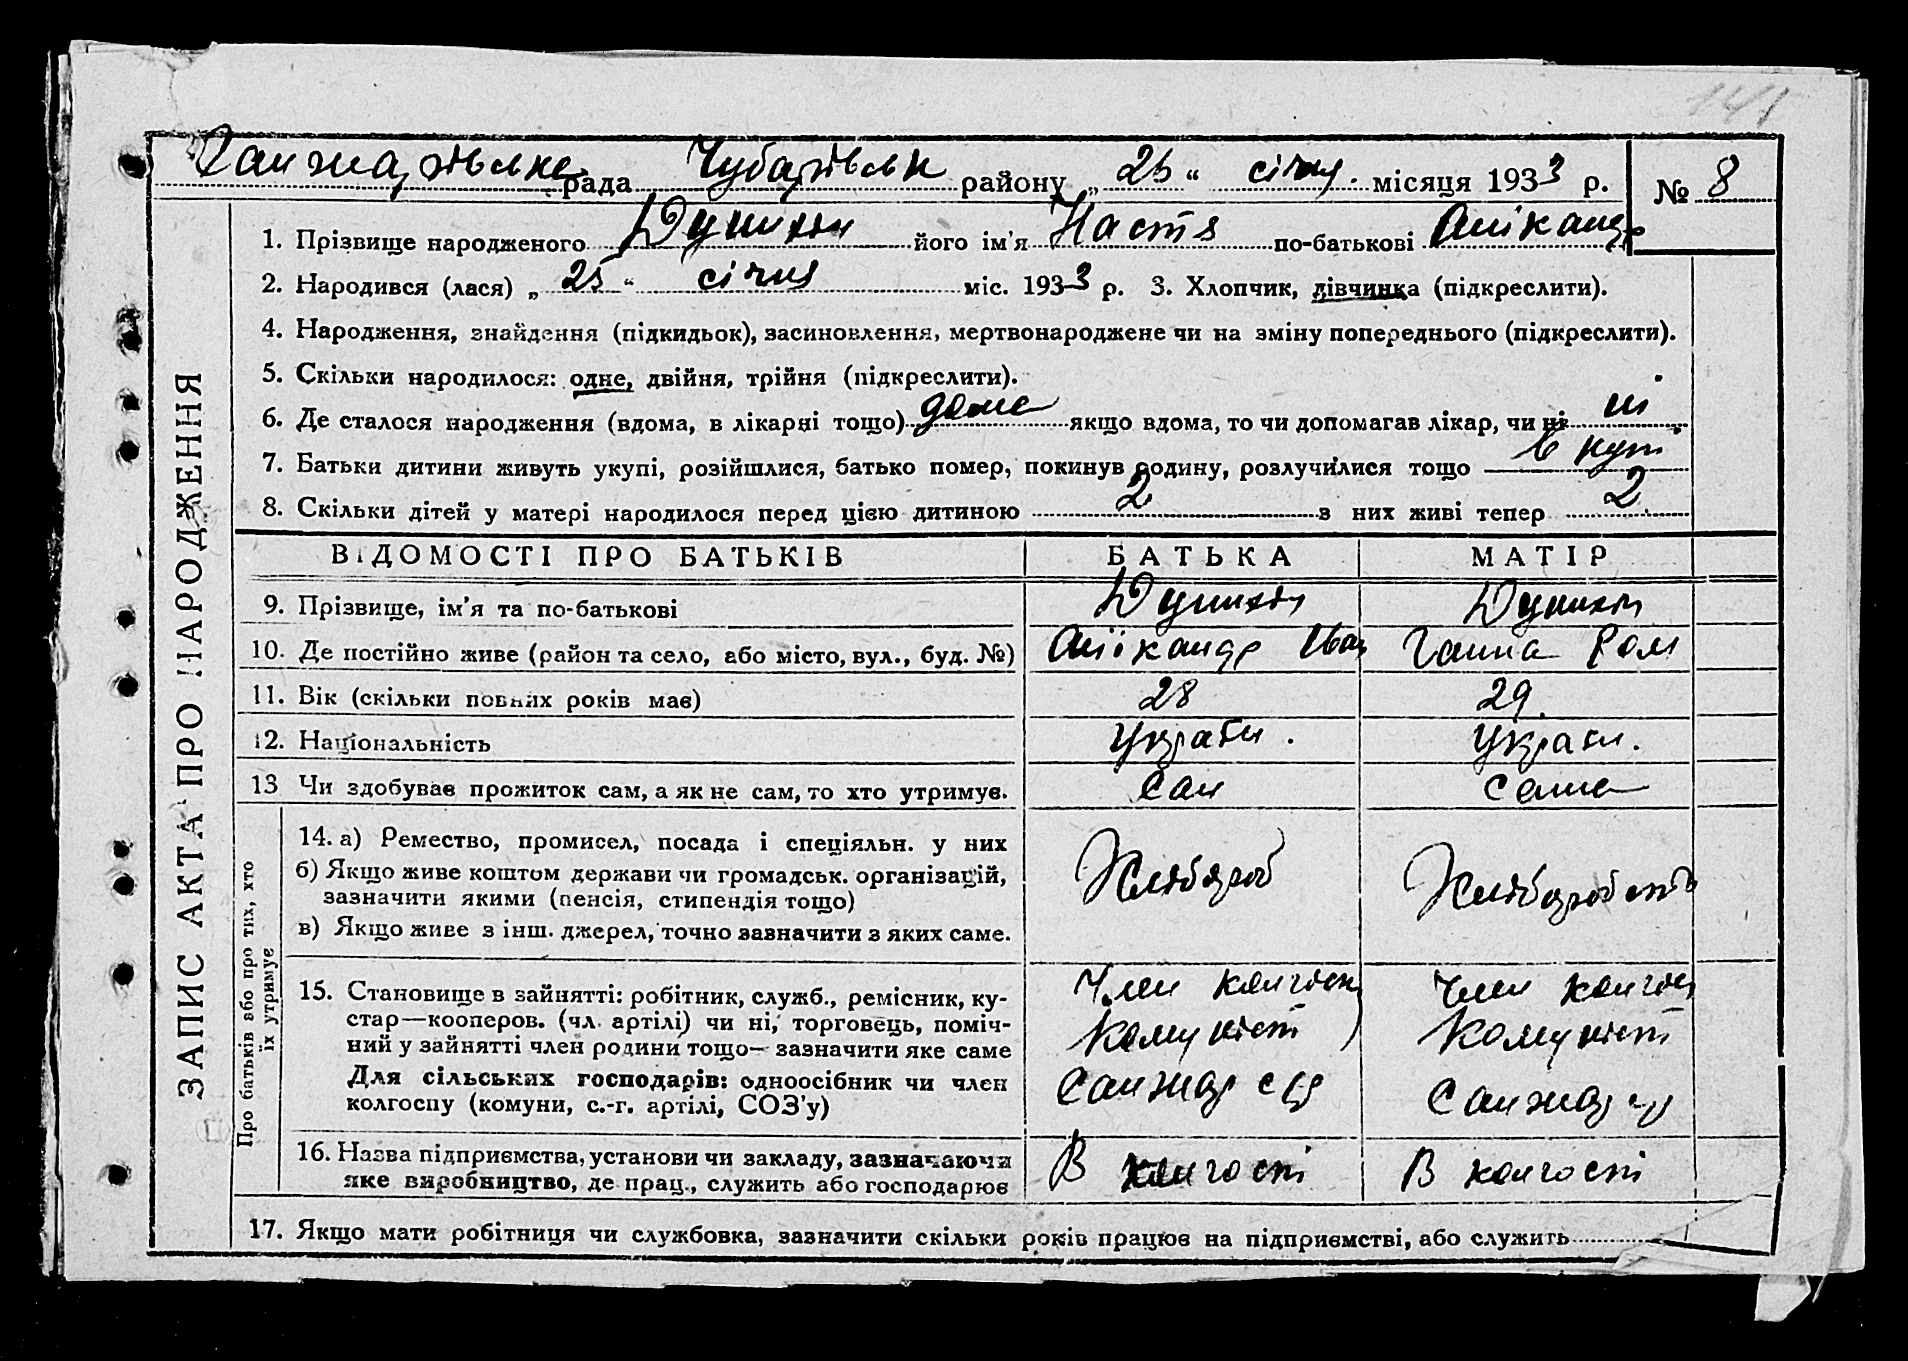 141
Санжарівська рада Чубарівськ району „ 25 “ січня. місяця 1933 р. № 8
1. Прізвище народженого його ім'я Настя по-батькові
2. Народився (лася) „ 25 “ січня міс. 1933 р. 3. Хлопчик, дівчинка (підкреслити).
4. Народження, знайдення (підкидьок), засиновлення, мертвонароджене чи на зміну попереднього (підкреслити).
5. Скільки народилося: одне, двійня, трійня (підкреслити).
6. Де сталося народження (вдома, в лікарні тощо) дома якщо вдома, то чи допомагав лікар, чи ні ні
7. Батьки дитини живуть укупі, розійшлися, батько помер, покинув родину, розлучилися тощо
8. Скільки дітей у матері народилося перед цією дитиною 2 з них живі тепер 2
ЗАПИС АКТА ПРО НАРОДЖЕННЯ
ВІДОМОСТІ ПРО БАТЬКІВ БАТЬКА МАТІР
9. Прізвище, ім'я та по-батькові
10. Де постійно живе (район та село, або місто, вул., буд. №) Іван Ганна Ром
11. Вік (скільки повних років має) 28 29
12. Національність Украін. Украін.
13 Чи здобуває прожиток сам, а як не сам, то хто утримує. Сам Сама
Про батьків або про тих, хто
їх утримує
14. а) Ремество, промисел, посада і спеціяльн. у них
б) Якщо живе коштом держави чи громадськ. організацій,
зазначити якими (пенсія, стипендія тощо)
в) Якщо живе з інш. джерел, точно зазначити з яких саме.
Хлібороб
15. Становище в зайнятті: робітник, служб., ремісник, ку-
стар—кооперов. (чл. артілі) чи ні, торговець, поміч-
ний у зайнятті член родини тощо— зазначити яке саме
Для сільських господарів: одноосібник чи член
колгоспу (комуни, с.-г. артілі, СОЗ'у)
Член колгосп
Комуніст
Санжар
Член колгосп
Комуніст
Санжар
16. Назва підприємства, установи чи закладу, зазначаючи
яке виробництво, де прац., служить або господарює
В колгоспі В колгоспі
17. Якщо мати робітниця чи службовка, зазначити скільки років працює на підприємстві, або служить